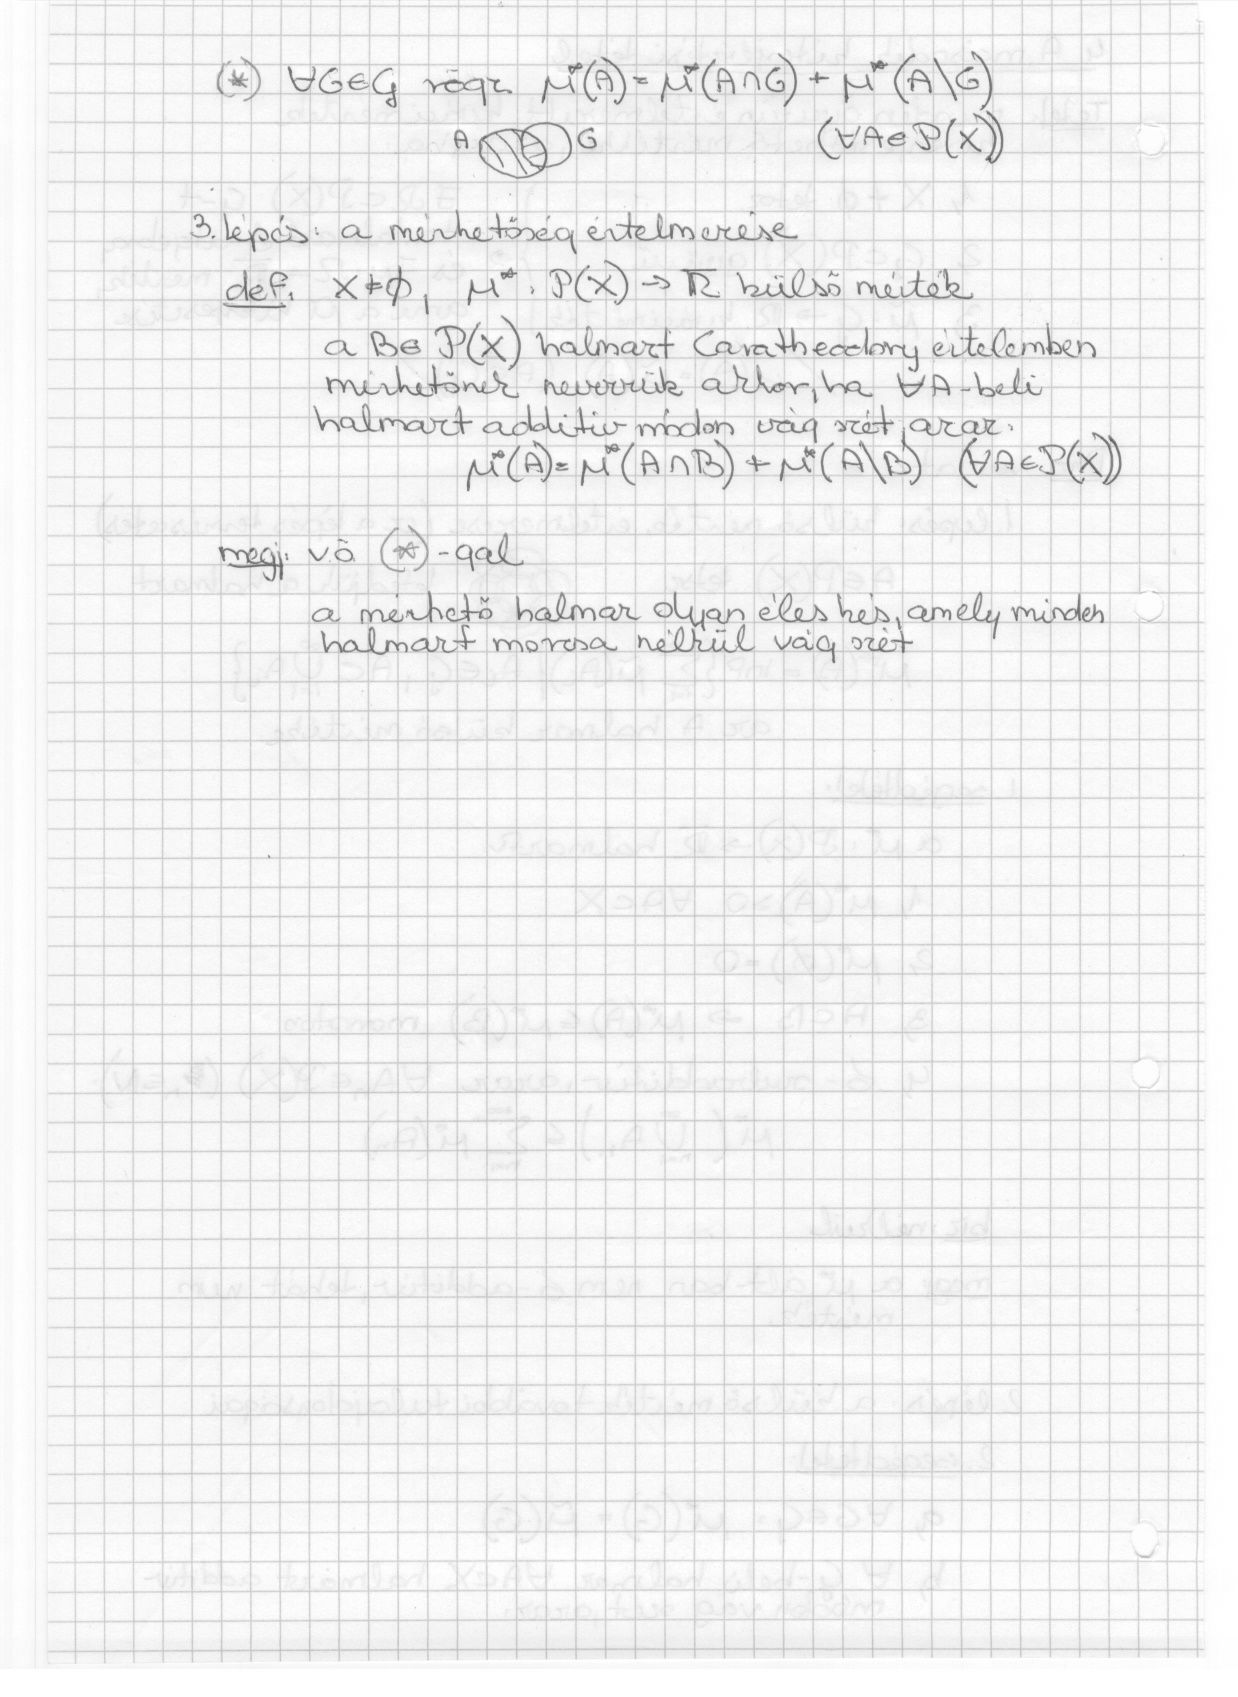 (*) ∀G∈G rögz. μ*(A) = μ*(A∩G) + μ*(A\G)
A G (∀A∈P(X))
3. lépés: a mérhetőség értelmezése
def. X≠∅, μ*: P(X) → R̅ külső mérték
a B∈P(X) halmazt Caratheodory értelemben
mérhetőnek nevezzük akkor, ha ∀A-beli
halmazt additív módon vág szét, azaz:
μ*(A) = μ*(A∩B) + μ*(A\B) (∀A∈P(X))
megj: v.ö. (*)-gal
a mérhető halmaz olyan éles kés, amely minden
halmazt morzsa nélkül vág szét